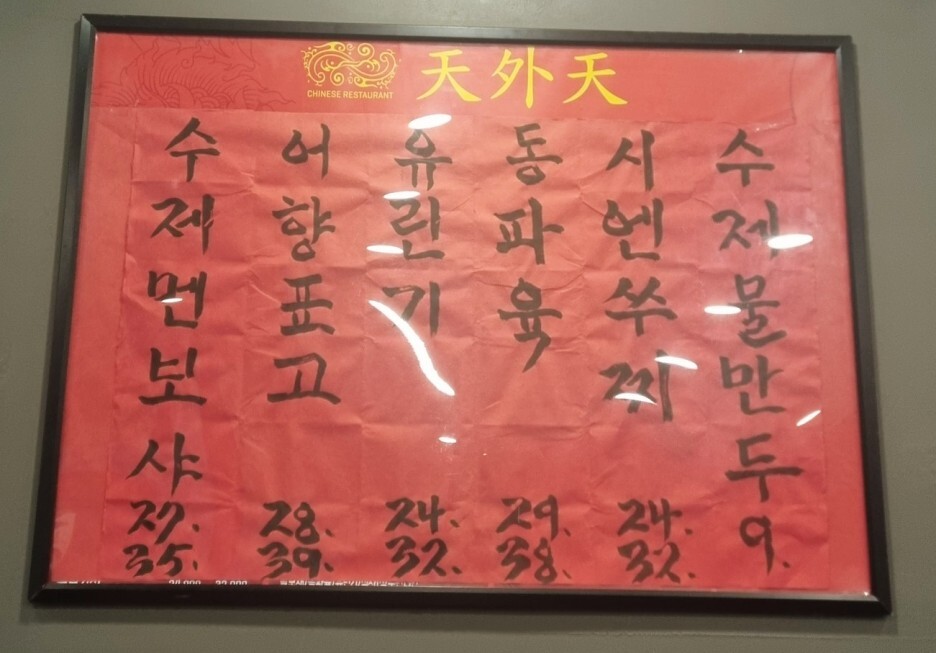 CHINESE RESTAURANT
天外天
수제멘보샤
27.
35.
어향표고
28.
39.
유린기
24.
32.
동파육
29.
38.
시엔쑤찌
24.
32.
수제물만두
9.